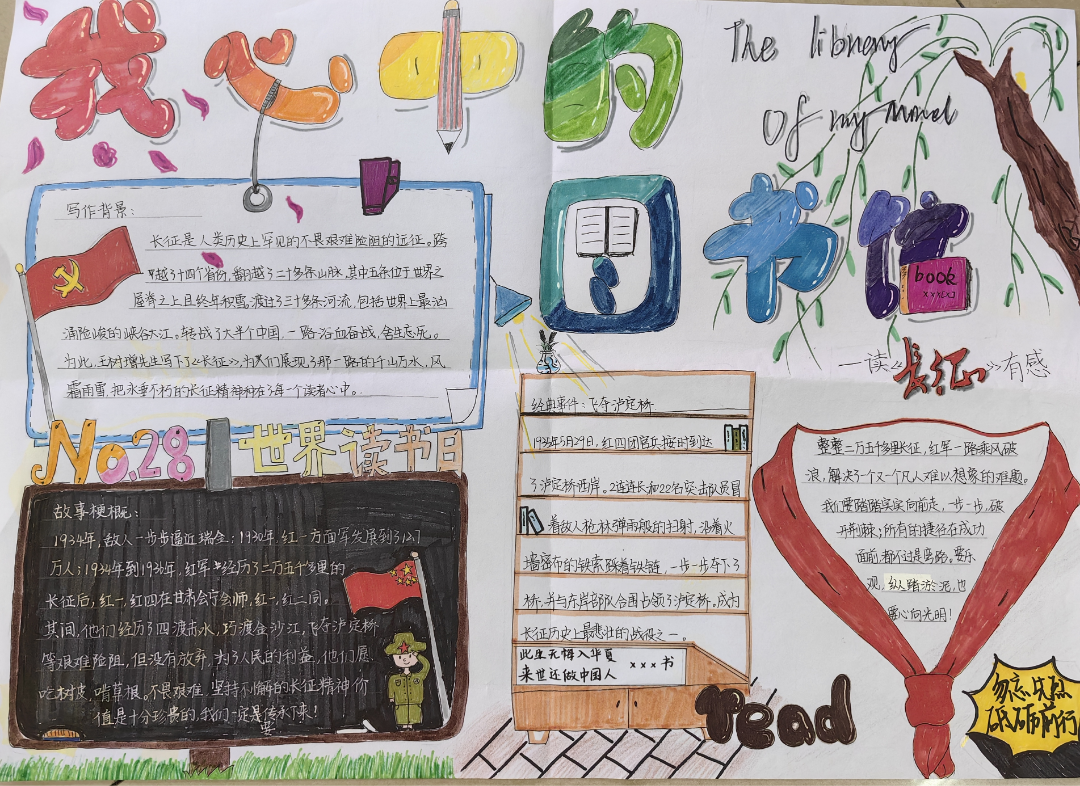 我心中的
图书馆
The librery
Of my mind
book
xxxx
——读《长征》有感
写作背景:
长征是人类历史上罕见的不畏艰难险阻的远征。跨
越了十四个省份,翻越了二十多条山脉,其中五条位于世界之
屋脊之上且终年积雪,渡过了三十多条河流,包括世界上最汹
涌险峻的峡谷大江。转战了大半个中国,一路浴血奋战,舍生忘死。
为此,王树增先生写下了《长征》,为我们展现了那一路的千山万水,风
霜雨雪,把永垂不朽的长征精神种在了每一个读者心中。
No.28 世界读书日
故事梗概:
1934年,敌人一步步逼近瑞金;1930年,红一方面军发展到了12.7
万人;1934年到1936年,红军经历了二万五千多里的
长征后,红一,红四在甘肃会宁会师,红一,红二同。
其间,他们经历了四渡赤水,巧渡金沙江,飞夺泸定桥
等艰难险阻,但没有放弃,为了人民的利益,他们愿
吃树皮,啃草根。不畏艰难 坚持不懈的长征精神价
值是十分珍贵的,我们一定要传承下来!
经典事件:飞夺泸定桥
1935年5月29日,红四团官兵按时到达
了泸定桥西岸。2连连长和22名突击队员冒
着敌人枪林弹雨般的扫射,沿着火
墙密布的铁索踩着铁链,一步一步夺下了
桥,并与东岸部队合围占领了泸定桥。成为
长征历史上最悲壮的战役之一。
此生无悔入华夏
来世还做中国人
xxx书
read
整整二万五千多里长征,红军一路乘风破
浪,解决了一又一个凡人难以想象的难题。
我们要踏踏实实向前走,一步一步,破
开荆棘;所有的捷径在成功
面前,都不过是弯路。要乐
观,纵踏淤泥,也
要心向光明!
勿忘先烈
砥砺前行